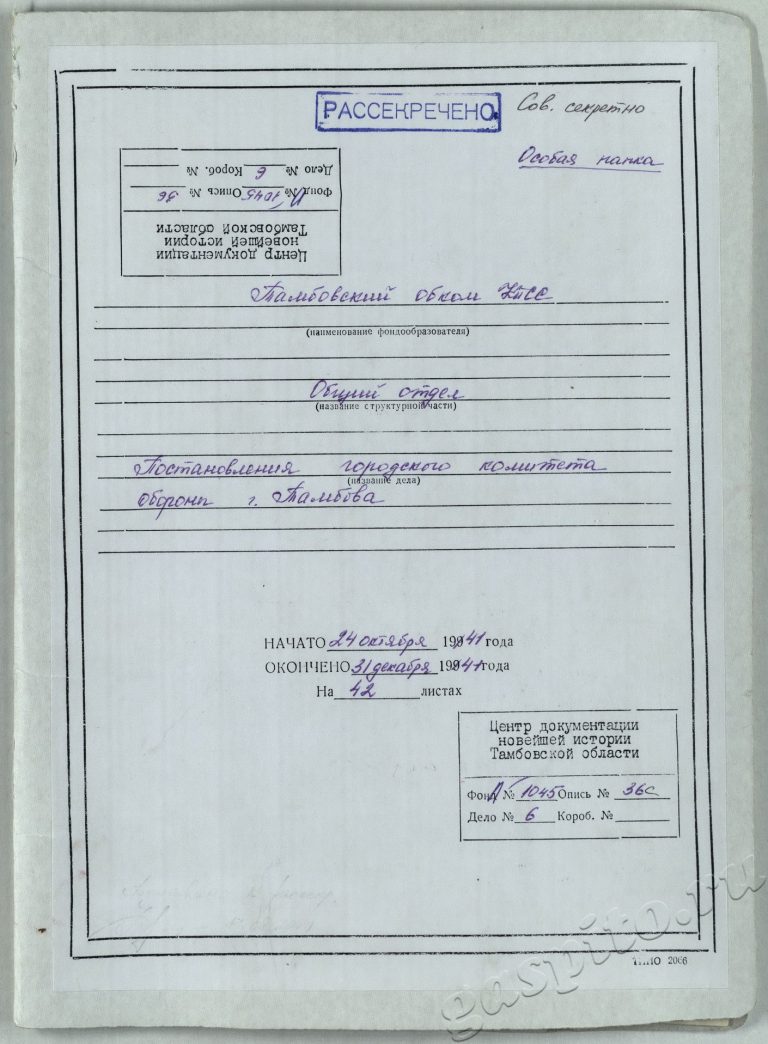 РАССЕКРЕЧЕНО
Сов. секретно
Особая папка
Центр документации
новейшей истории
Тамбовской области
Фонд № 1045 Опись №
Дело № 6 Короб. №
Тамбовский обком КПСС
(наименование фондообразователя)
Общий отдел
(название структурной части)
Постановления городского комитета
(название дела)
обороны г. Тамбова
НАЧАТО 24 октября 1941 года
ОКОНЧЕНО 31 декабря 1941 года
На 42 листах
Центр документации
новейшей истории
Тамбовской области
Фонд № 1045 Опись № 36с
Дело № 6 Короб. №
2006
gaspito.ru